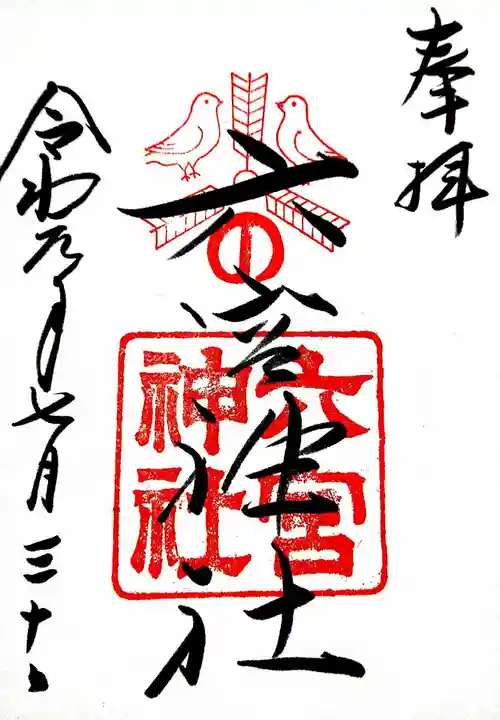 奉拝
六宮神社
六宮
神社
令和元年七月三十日